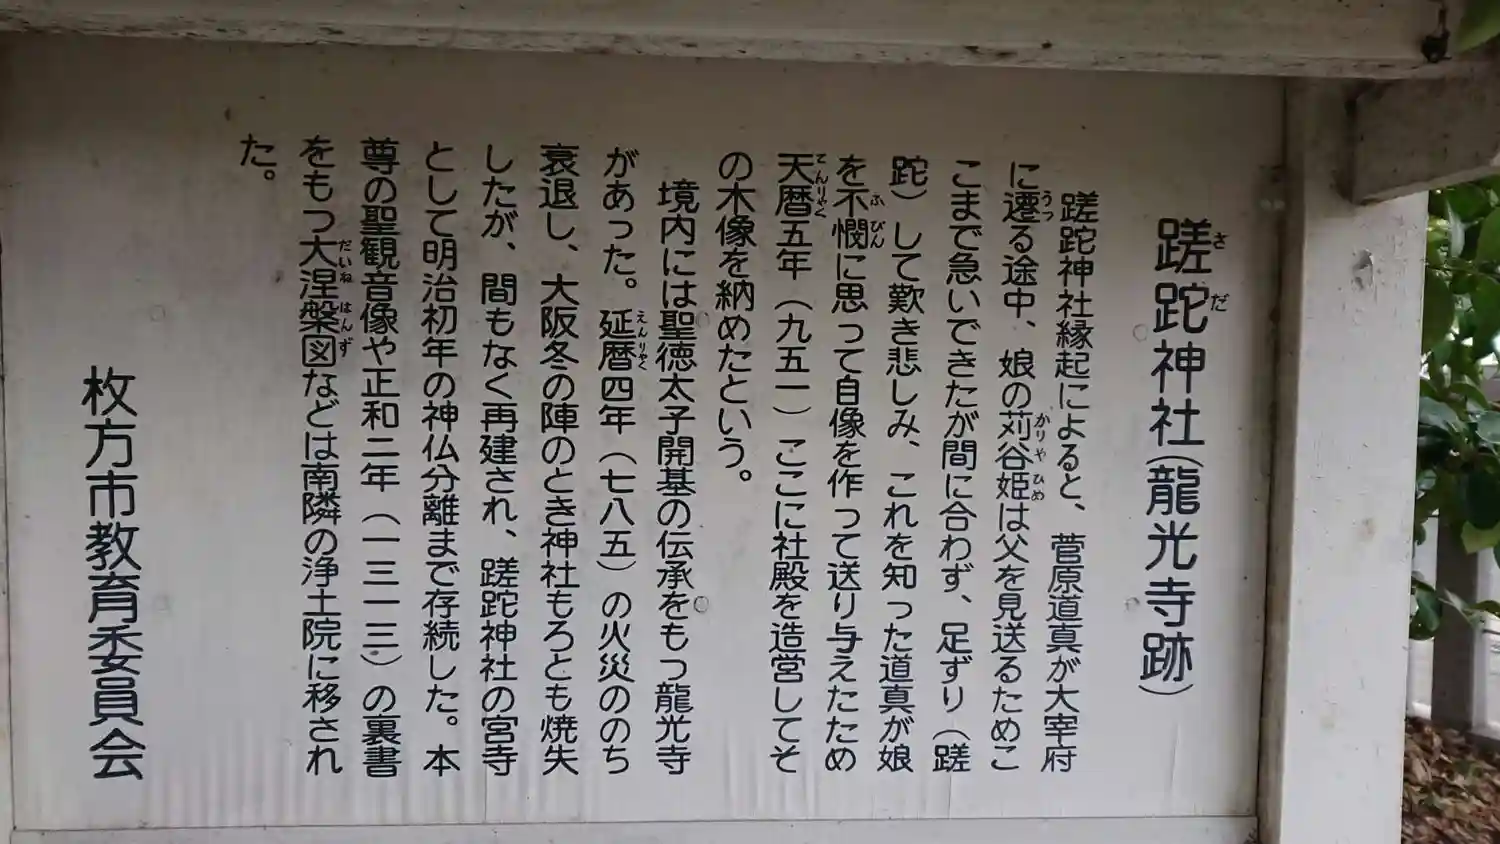 蹉跎神社(龍光寺跡)
蹉跎神社縁起によると、菅原道真が大宰府
に遷る途中、娘の苅谷姫は父を見送るためこ
こまで急いできたが間に合わず、足ずり(蹉
跎)して歎き悲しみ、これを知った道真が娘
を不憫に思って自像を作って送り与えたため
天暦五年(九五一)ここに社殿を造営してそ
の木像を納めたという。
境内には聖徳太子開基の伝承をもつ龍光寺
があった。延暦四年(七八五)の火災ののち
衰退し、大阪冬の陣のとき神社もろとも焼失
したが、間もなく再建され、蹉跎神社の宮寺
として明治初年の神仏分離まで存続した。本
尊の聖観音像や正和二年(一三一三)の裏書
をもつ大涅槃図などは南隣の浄土院に移され
た。
枚方市教育委員会